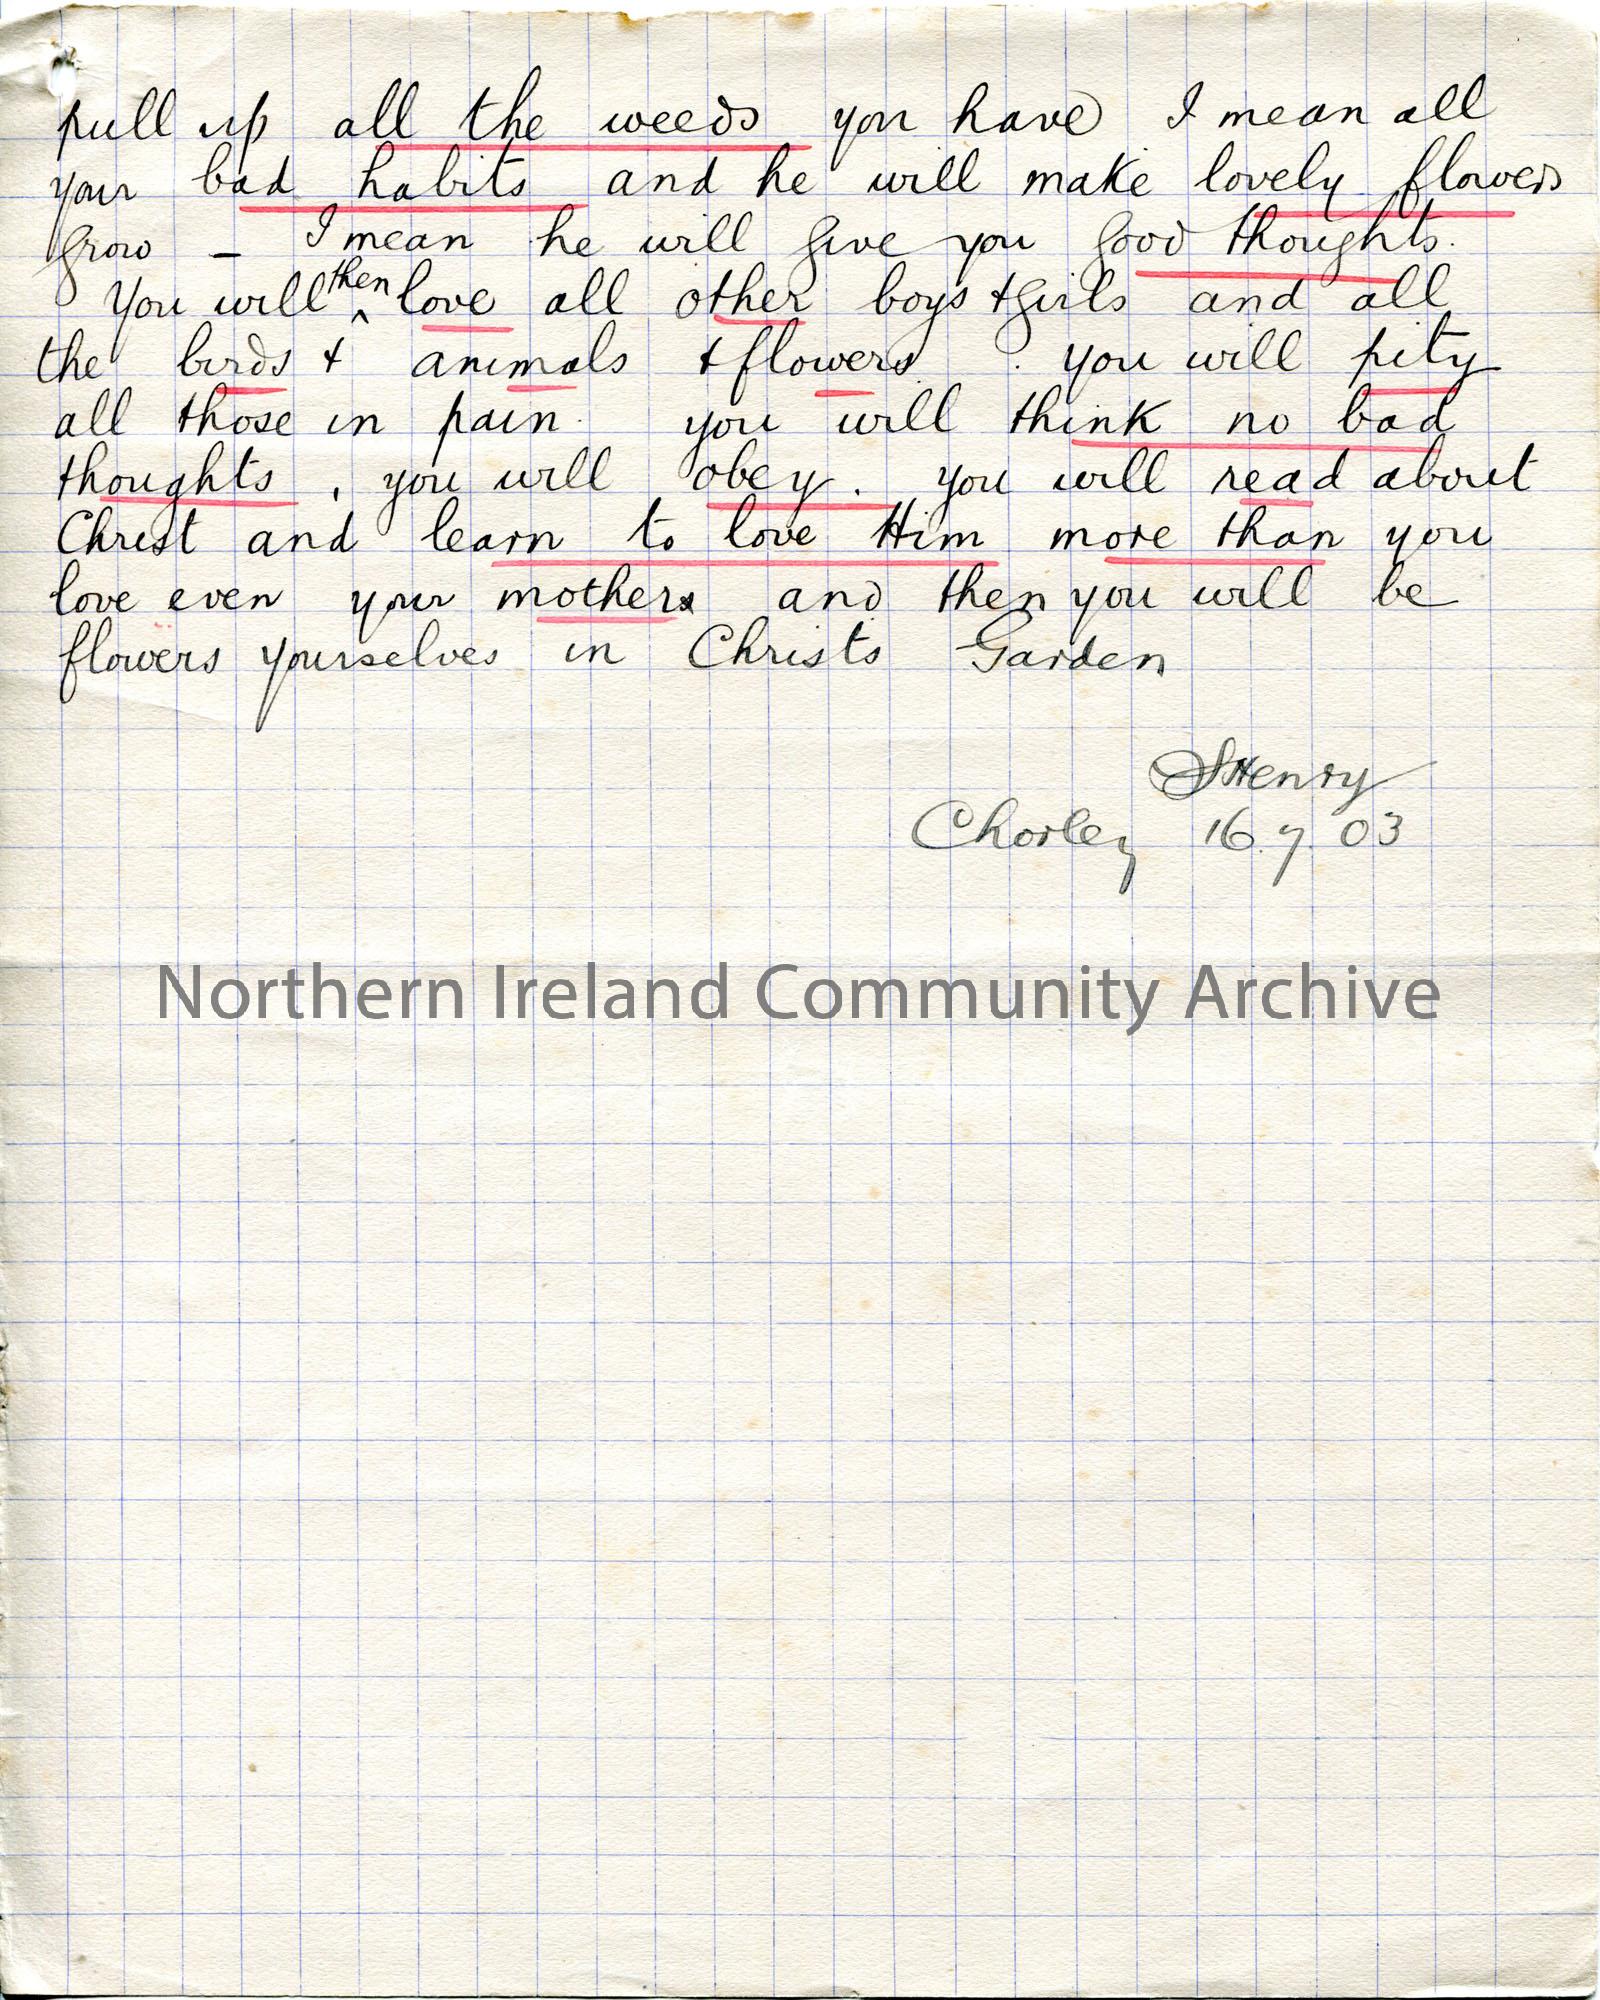 pull up all the weeds you have I mean all
your bad habits and he will make lovely flowers
grow – I mean he will give you good thoughts.
You will then love all other boys & girls and all
the birds & animals & flowers. you will pity
all those in pain. you will think no bad
thoughts, you will obey. you will read about
Christ and learn to love Him more than you
love even your mothers and then you will be
flowers yourselves in Christs Garden
SHenry
Chorley 16.7.03
Northern Ireland Community Archive